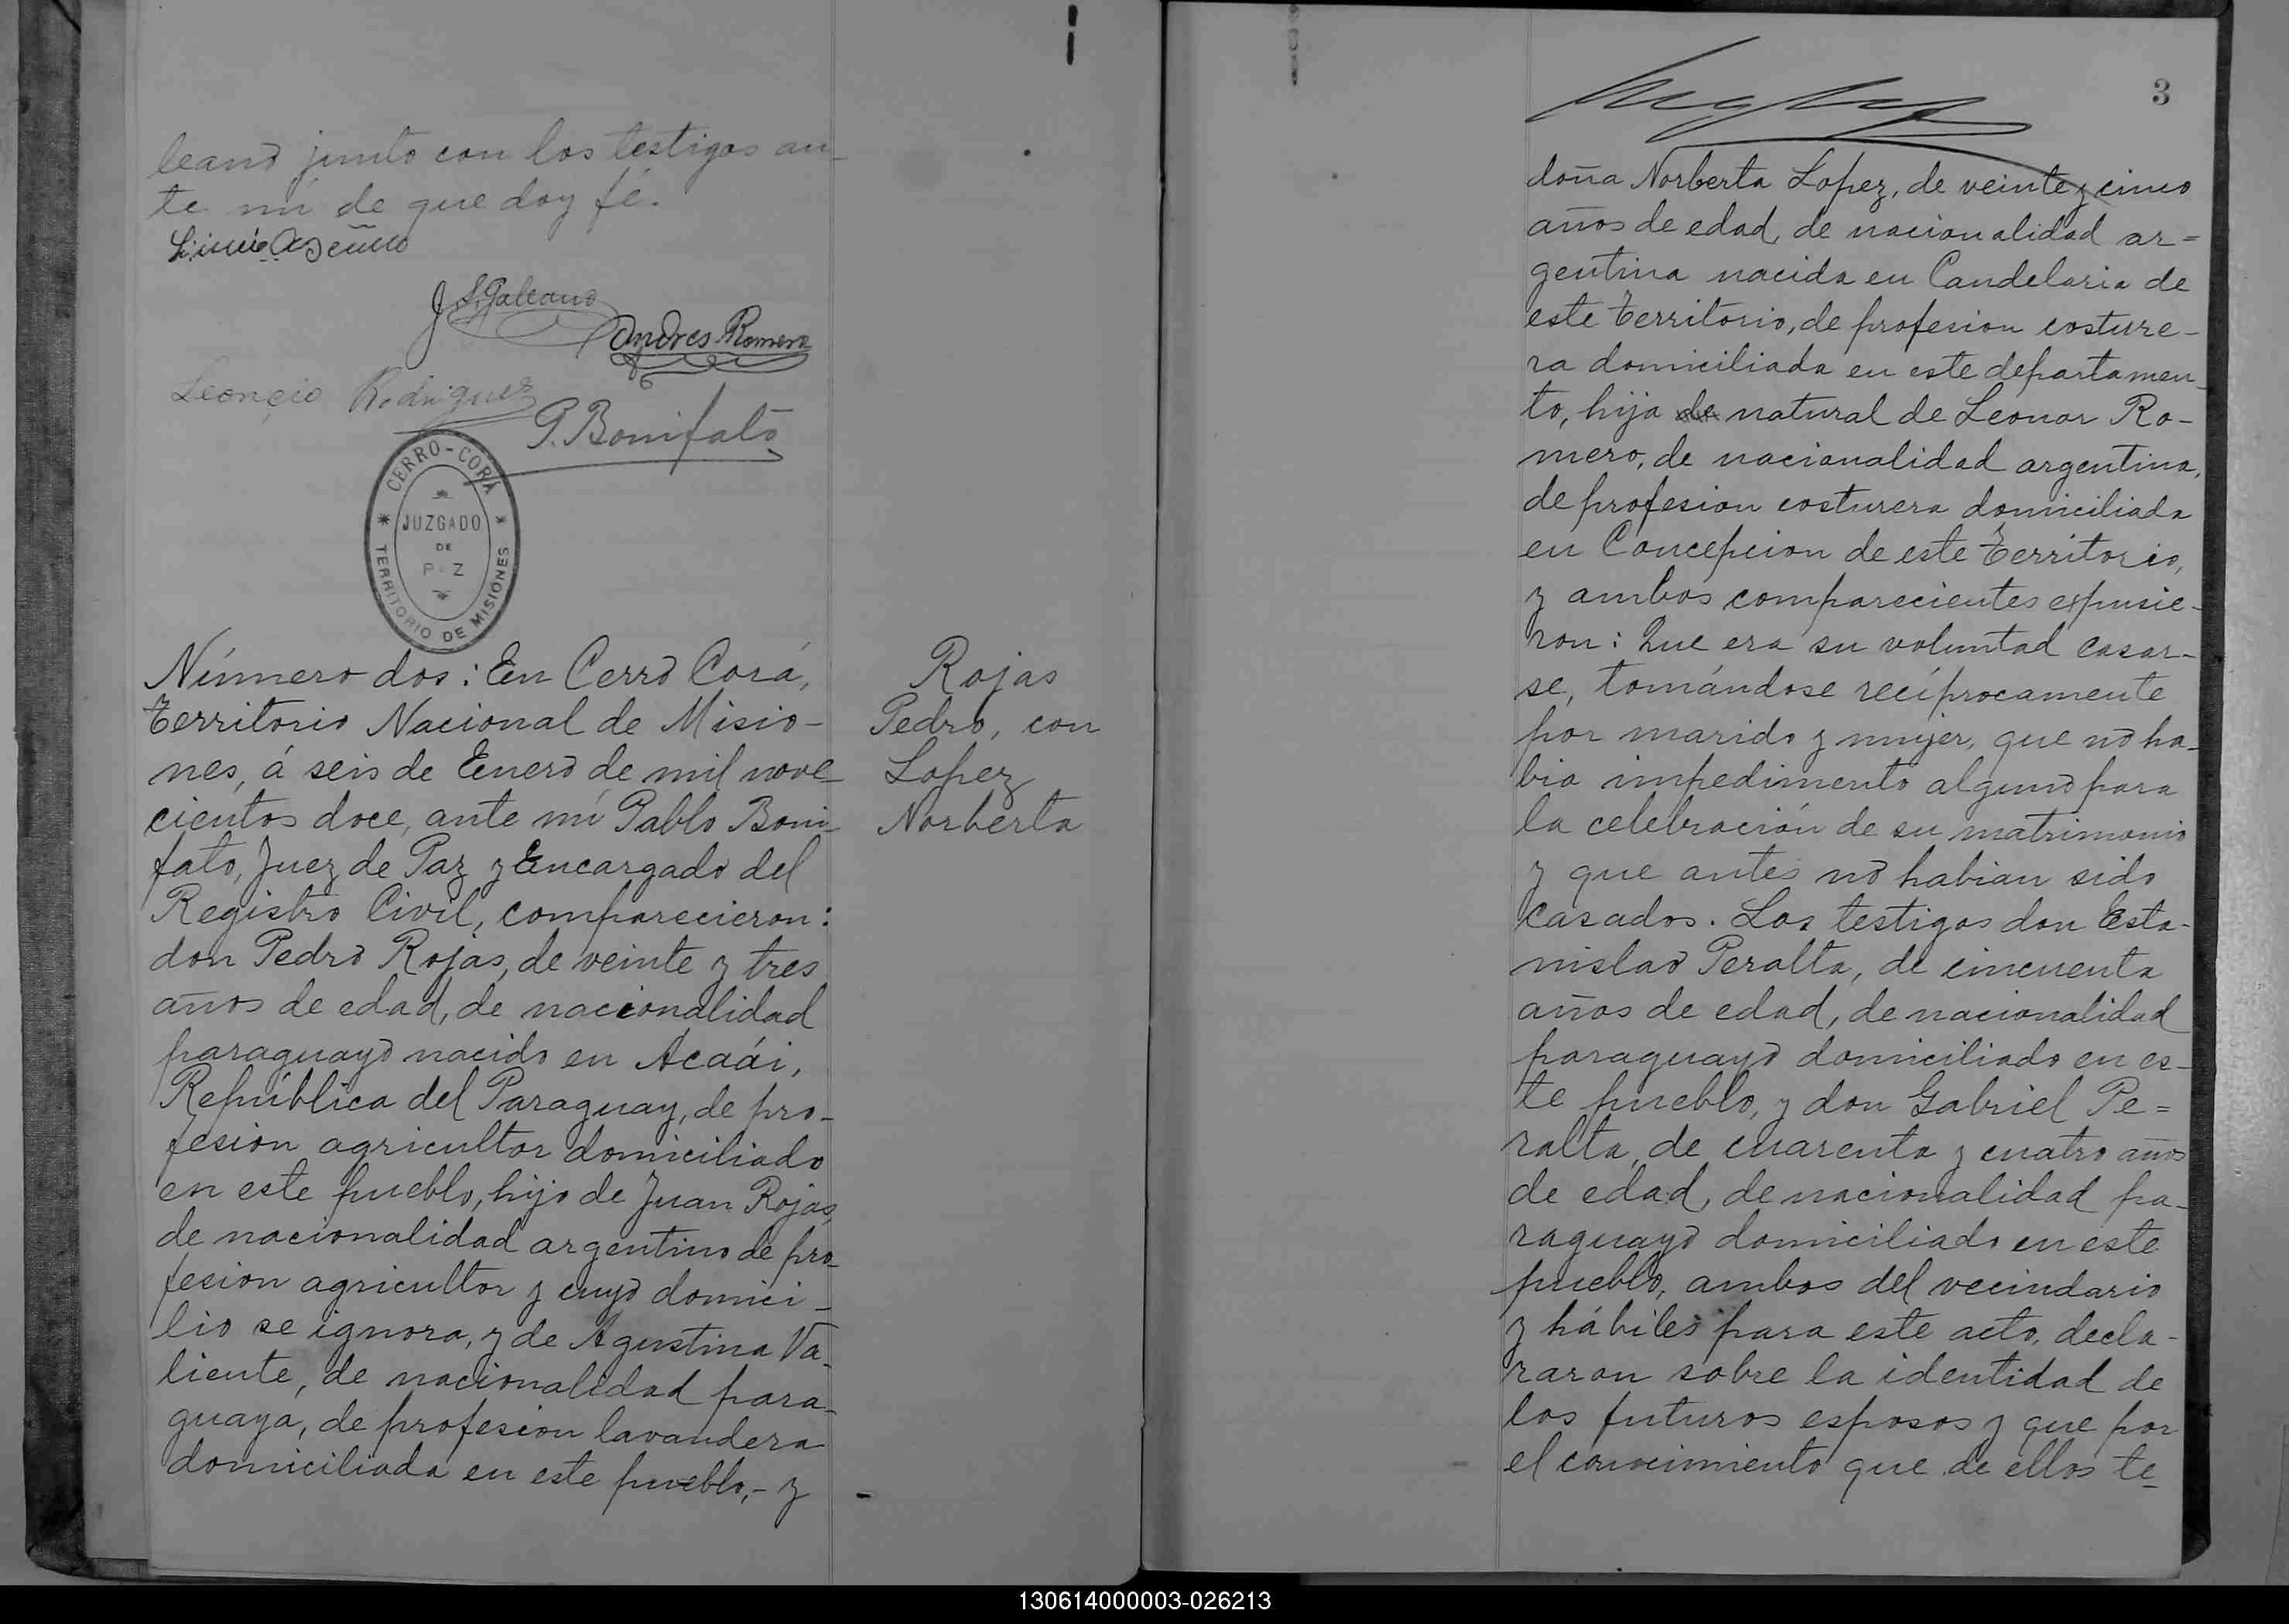 leano junto con los testigos an-
te mí de que doy fé.
J S. Galeano
Andres Romero
Leoncio Rodriguez
P. Bonifato
CERRO-CORÁ
JUZGADO
DE
P Z
TERRITORIO DE MISIONES
Número dos: En Cerro Corá,
Territorio Nacional de Misio-
nes, á seis de Enero de mil nove-
cientos doce, ante mí Pablo Boni-
fato, Juez de Paz y Encargado del
Registro Civil, comparecieron:
don Pedro Rojas, de veinte y tres
años de edad, de nacionalidad
paraguayo nacido en Acaái,
República del Paraguay, de pro-
fesion agricultor domiciliado
en este pueblo, hijo de Juan Rojas,
de nacionalidad argentino de pro-
fesion agricultor y cuyo domici-
lio se ignora, y de Agustina Va-
liente, de nacionalidad para-
guaya, de profesion lavandera
domiciliada en este pueblo,- y
Rojas
Pedro, con
Lopez
Norberta
3
doña Norberta Lopez, de veinte y cinco
años de edad, de nacionalidad ar=
gentina nacida en Candelaria de
este Territorio, de profesion costure-
ra domiciliada en este departamen-
to, hija de natural de Leonor Ro-
mero, de nacionalidad argentina,
de profesion costurera domiciliada
en Concepcion de este Territorio,
y ambos comparecientes expusie-
ron: Que era su voluntad casar-
se, tomándose recíprocamente
por marido y mujer, que no ha-
bia impedimento alguno para
la celebración de su matrimonio
y que antes no habian sido
casados. Los testigos don Esta-
nislao Peralta, de cincuenta
años de edad, de nacionalidad
paraguayo domiciliado en es-
te pueblo, y don Gabriel Pe=
ralta, de cuarenta y cuatro años
de edad, de nacionalidad pa-
raguayo domiciliado en este
pueblo, ambos del vecindario
y hábiles para este acto, decla-
raron sobre la identidad de
los futuros esposos y que por
el conocimiento que de ellos te-
130614000003-026213